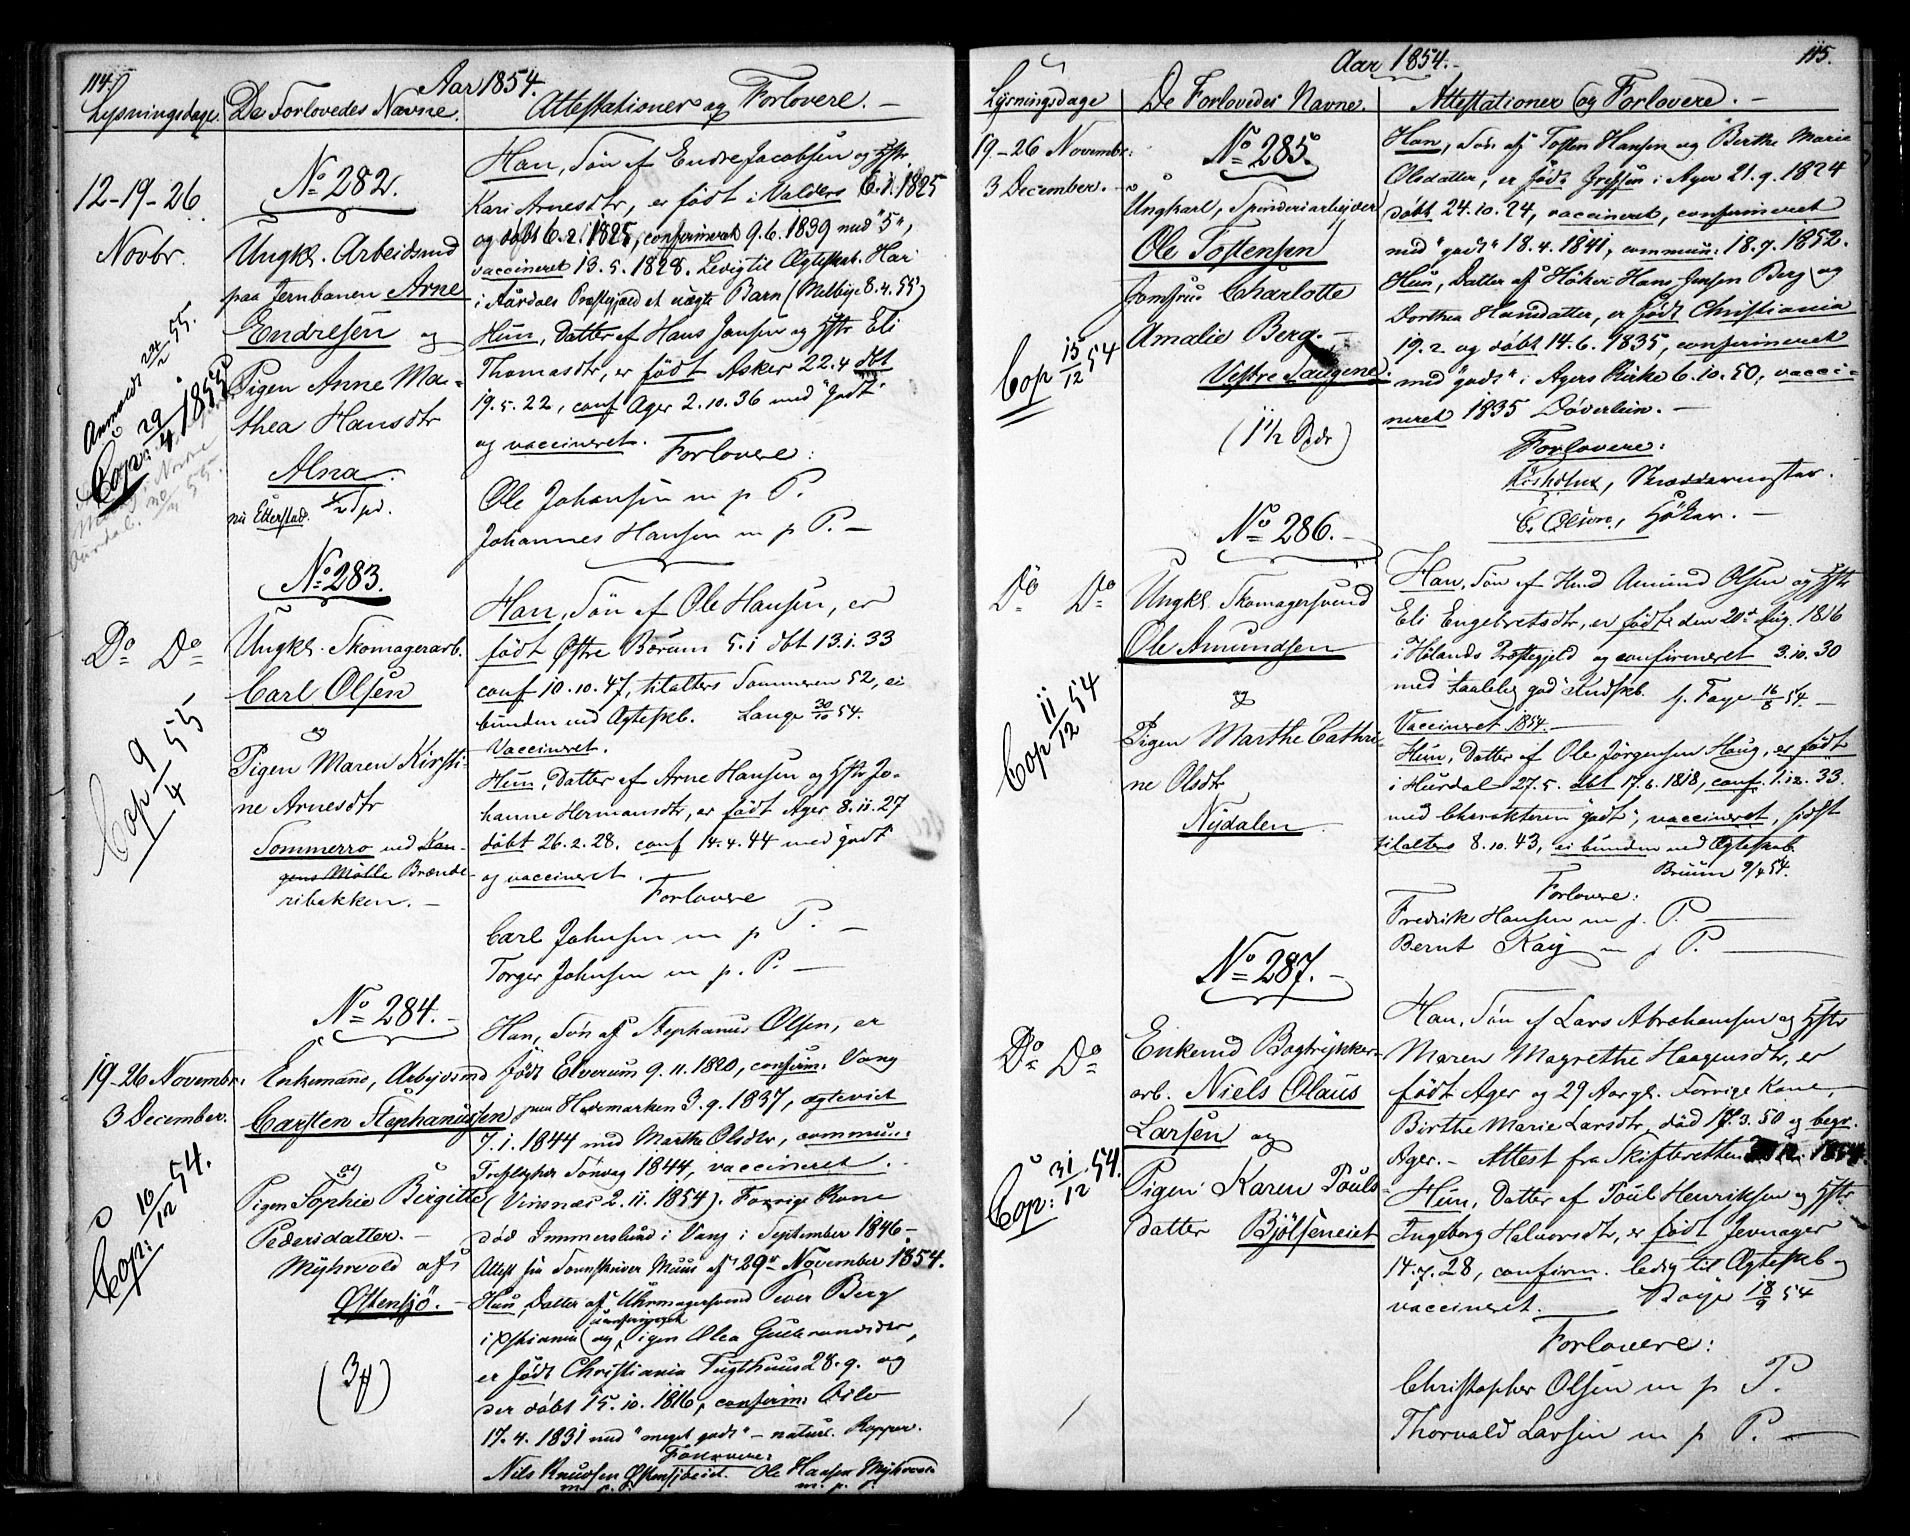 114.
Aar 1854.
Lysningsdage. De Forlovedes Navne. Attestationer og Forlovere. –
No 282.
12-19-26
Novbr.
Ungkl. Arbeidsmd
paa Jernbanen Arne
Endresen og
Pigen Anne Ma-
thea Hansdtr
Alna.
nu Etterstad. 1/2 Spd.
Anmeldt 24/2 55.
Cop: 29/4 1855
Han, Søn af Endre Jacobsen og Hstr
Kari Arnesdtr, er født i Valders 6.1.1825
og døbt 6.2.1825, confirmeret 9.6.1839 med "5",
vaccineret 13.5.1828. Ledig til Ægteskab. Har
i Aurdals Præstegjæld et uægte Barn (Melbye 8.4.55)
Hun, Datter af Hans Jensen og Hstr Eli
Thomasdtr, er født Asker 22.4 dbt
19.5.22, conf Ager 2.10.36 med "godt"
og vaccineret. Forlovere:
Ole Johansen m p P.
Johannes Hansen m p P. –
No 283.
Do Do
Ungkl. Skomagerarb.
Carl Olsen
og
Pigen Maren Kirsti-
ne Arnesdtr
Sommerro ved Kan-
gens Mølle Brænde-
ribakken. –
Cop 9/4 55
Han, Søn af Ole Hansen, er
født Østre Bærum 5.1 dbt 13.1.33
conf 10.10.47, tilalters Sommeren 52, ei
bunden ved Ægteskb. Lange 30/10 54.
Vaccineret.
Hun, Datter af Arne Hansen og Hstr Jo-
hanne Hermansdtr, er født Ager 8.11.27
døbt 26.2.28. conf 14.4.44 med "godt"
og vaccineret.
Forlovere
Carl Johnsen m p P. –
Torger Johnsen m. p. P. –
No 284. –
19-26 Novembr:
3 December.
Enkemand, Arbejdsmd
Carsten Stephanussen
og
Pigen Sophie Birgitte
Pedersdatter. –
Myhrvold af
Østensjø. –
Cop: 16/12 54.
Han, Søn af Stephanus Olsen, er
født Elverum 9.11.1820, confirm: Vang
paa Hedemarken 3.9.1837, ægteviet
7.1.1844 med Marthe Olsdtr, commun:
Søndag 1844, vaccineret. –
(Viisnes 2.11.1854). Forrige Kone
død Immerslund i Vang i September 1846 –
Attest fra Sorenskriver Muus af 29de November 1854.
Hun, Datter af Uhrmagersvend Iver Berg
i Xstiania og Pigen Olea Gulbrandsdtr,
er født Christiania Tugthuus 28.9. og
der døbt 15.10.1816, confirm: Oslo
17.4.1831 med "meget godt" – naturl. Kopper.
Forlovere:
Nils Knudsen Østensjøeiet. Ole Hansen Myhrvold
m. p. P. m. p. P.
115.
Aar 1854. –
Lysningsdage De Forlovedes Navne. Attestationer og Forlovere. –
No 285.
19-26 Novembr:
3 December. –
Ungkarl, Spinderiarbejder
Ole Tostensen
Jomfrue Charlotte
Amalie Berg. –
Vestre Saugene.
(1 1/2 Spdr)
Cop 15/12 54
Han, Søn af Tosten Hansen og Berthe Marie
Olsdatter, er født Grefsen i Ager 21.9.1824
døbt 24.10.24, vaccineret, confirmeret
med "godt" 18.4.1841, commun: 18.7.1852.
Hun, Datter af Høker Hans Jensen Berg og
Dorthea Hansdatter, er født Christiania
19.2 og døbt 14.6.1835, confirmeret
med "godt" i Agers Kirke 6.10.50, vacci-
neret 1835 Døverlein. –
Forlovere:
Skræddermester.
C. Olsen, Høker. –
No 286. –
Do Do
Ungkl. Skomagersvend
Ole Amundsen
og
Pigen Marthe Cathri-
ne Olsdtr
Nydalen
Cop 11/12 54
Han, Søn af Hmd Amund Olsen og Hstr
Eli Engebretsdtr, er født den 20de Aug. 1816
i Hølands Præstegjeld og confirmeret 3.10.30
med taalelig god Kundskb. Hj. Faye 16/8 54. –
Vaccineret 1854. –
Hun, Datter af Ole Jørgensen Haug, er født
i Hurdal 27.5. dbt 17.6.1818, conf. 1.12.33.
med Charakteren "godt", vaccineret, sidst
tilalters 8.10.43, ei bunden ved Ægteskab.
Bruun 9/4 54.
Forlovere:
Fredrik Hansen m p. P. –
Bernt Kay m p P. –
No 287. –
Do Do
Enkemd Bogtrykker-
arb. Niels Olaus
Larsen og
Pigen Karen Pouls-
datter Bjølseneiet
Cop: 31/12 54.
Han, Søn af Lars Abrahamsen og Hstr
Maren Magrethe Haagensdtr, er
født Ager og 29 Aargl. Forrige Kone,
Birthe Marie Larsdtr, død 17.3.50 og begr.
Ager. – Attest fra Skifteretten 12. 1854.
Hun, Datter af Poul Henriksen og Hstr
Ingeborg Halvorsdtr, er født Jevnager
14.7.28, confirm. ledig til Ægteskb og
vaccineret. – Boije 18/9 54
Forlovere:
Christopher Olsen m p P.
Thorvald Larsen m p P. –